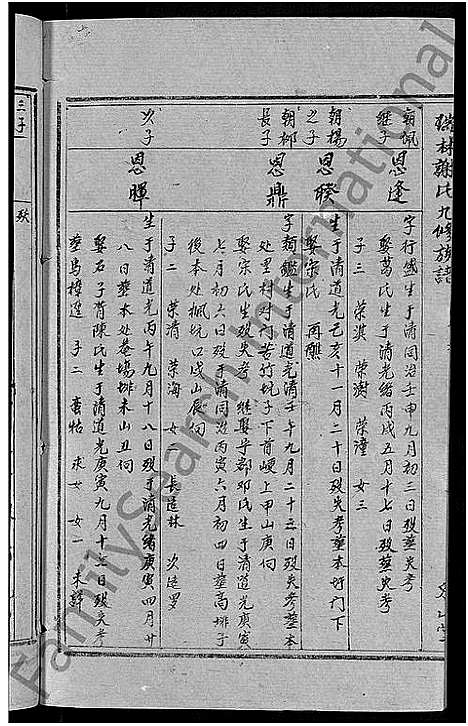 瑞林謝氏九修族譜
朝佩
继子
恩逢
字行盛生于清同治壬申九月初三日殁葬失考
娶葛氏生于清光緒丙戌五月十七日殁葬失考
子三 荣淇 荣澍 荣潼 女三
朝楊
之子
恩暌
生于清道光己亥十一月二十日殁失考葬本圩门下
娶宗氏 再醮
朝柳
長子
恩鼎
字頖鑑生于清道光壬午九月二十三日殁失考葬本
处里村对门苦竹坑子下首峺上甲山庚向
娶宗氏生殁失考 继娶乎都邓氏生于清道光庚寅
七月初六日殁于清同治丙寅六月初四日葬高排子
後本处楓坑口戌山辰向
子二 荣清 荣海 女二 長适林 次适罗
次子
恩暉
生于清道光丙午九月十八日殁于清光緒庚寅四月廿
八日葬本处菴場排未山丑向
娶石子荫陳氏生于清道光庚寅九月十七日殁失考
葬馬接迳 子二 蛮牯 求女 女一 未詳
三子
FamilySearch International